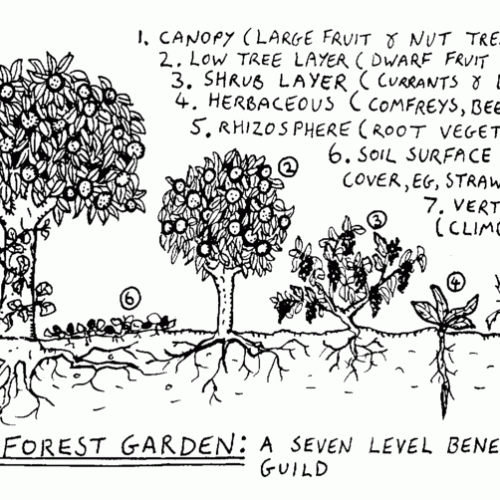 1. CANOPY (LARGE FRUIT & NUT TRE
2. LOW TREE LAYER (DWARF FRUIT
3. SHRUB LAYER (CURRANTS &
4. HERBACEOUS (COMFREYS, BEE
5. RHIZOSPHERE (ROOT VEGET
6. SOIL SURFACE
COVER, EG, STRAW
7. VERT
(CLIM
2
3
6
4
FOREST GARDEN: A SEVEN LEVEL BENE
GUILD